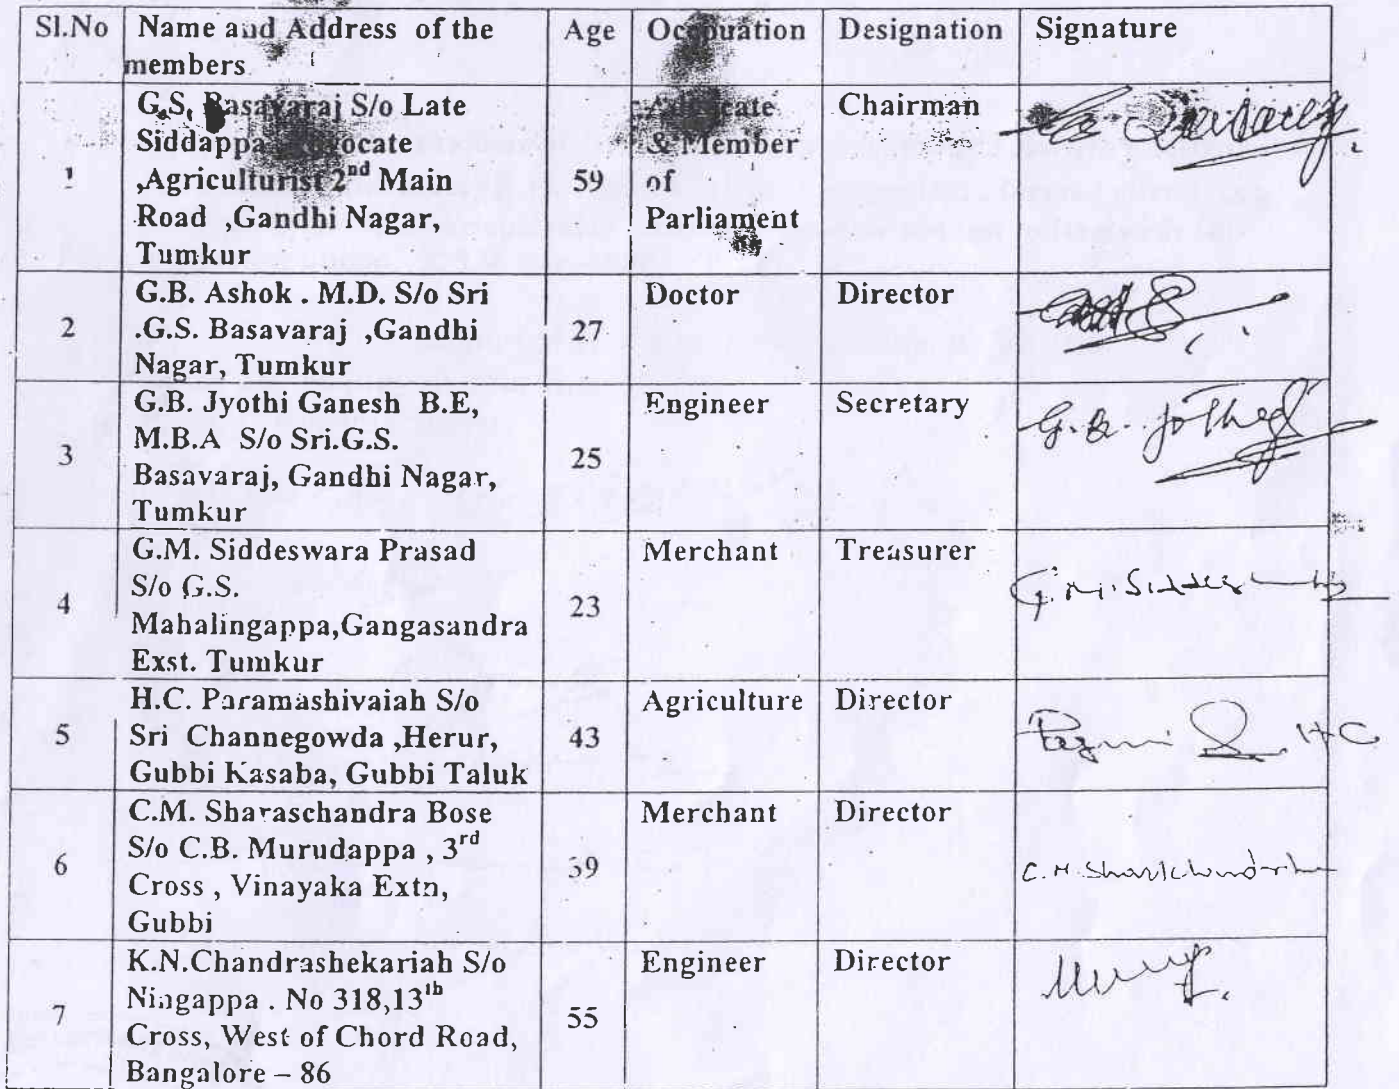 Sl.No Name and Address of the members Age Occpuation Designation Signature
1 G.S. Basavaraj S/o Late Siddappa Advocate ,Agriculturist 2nd Main Road ,Gandhi Nagar, Tumkur 59 Advocate & Member of Parliament Chairman
2 G.B. Ashok . M.D. S/o Sri .G.S. Basavaraj ,Gandhi Nagar, Tumkur 27 Doctor Director
3 G.B. Jyothi Ganesh B.E, M.B.A S/o Sri.G.S. Basavaraj, Gandhi Nagar, Tumkur 25 Engineer Secretary
4 G.M. Siddeswara Prasad S/o G.S. Mahalingappa,Gangasandra Exst. Tumkur 23 Merchant Treasurer
5 H.C. Paramashivaiah S/o Sri Channegowda ,Herur, Gubbi Kasaba, Gubbi Taluk 43 Agriculture Director
6 C.M. Sharaschandra Bose S/o C.B. Murudappa , 3rd Cross , Vinayaka Extn, Gubbi 39 Merchant Director
7 K.N.Chandrashekariah S/o Ningappa . No 318,13th Cross, West of Chord Road, Bangalore – 86 55 Engineer Director